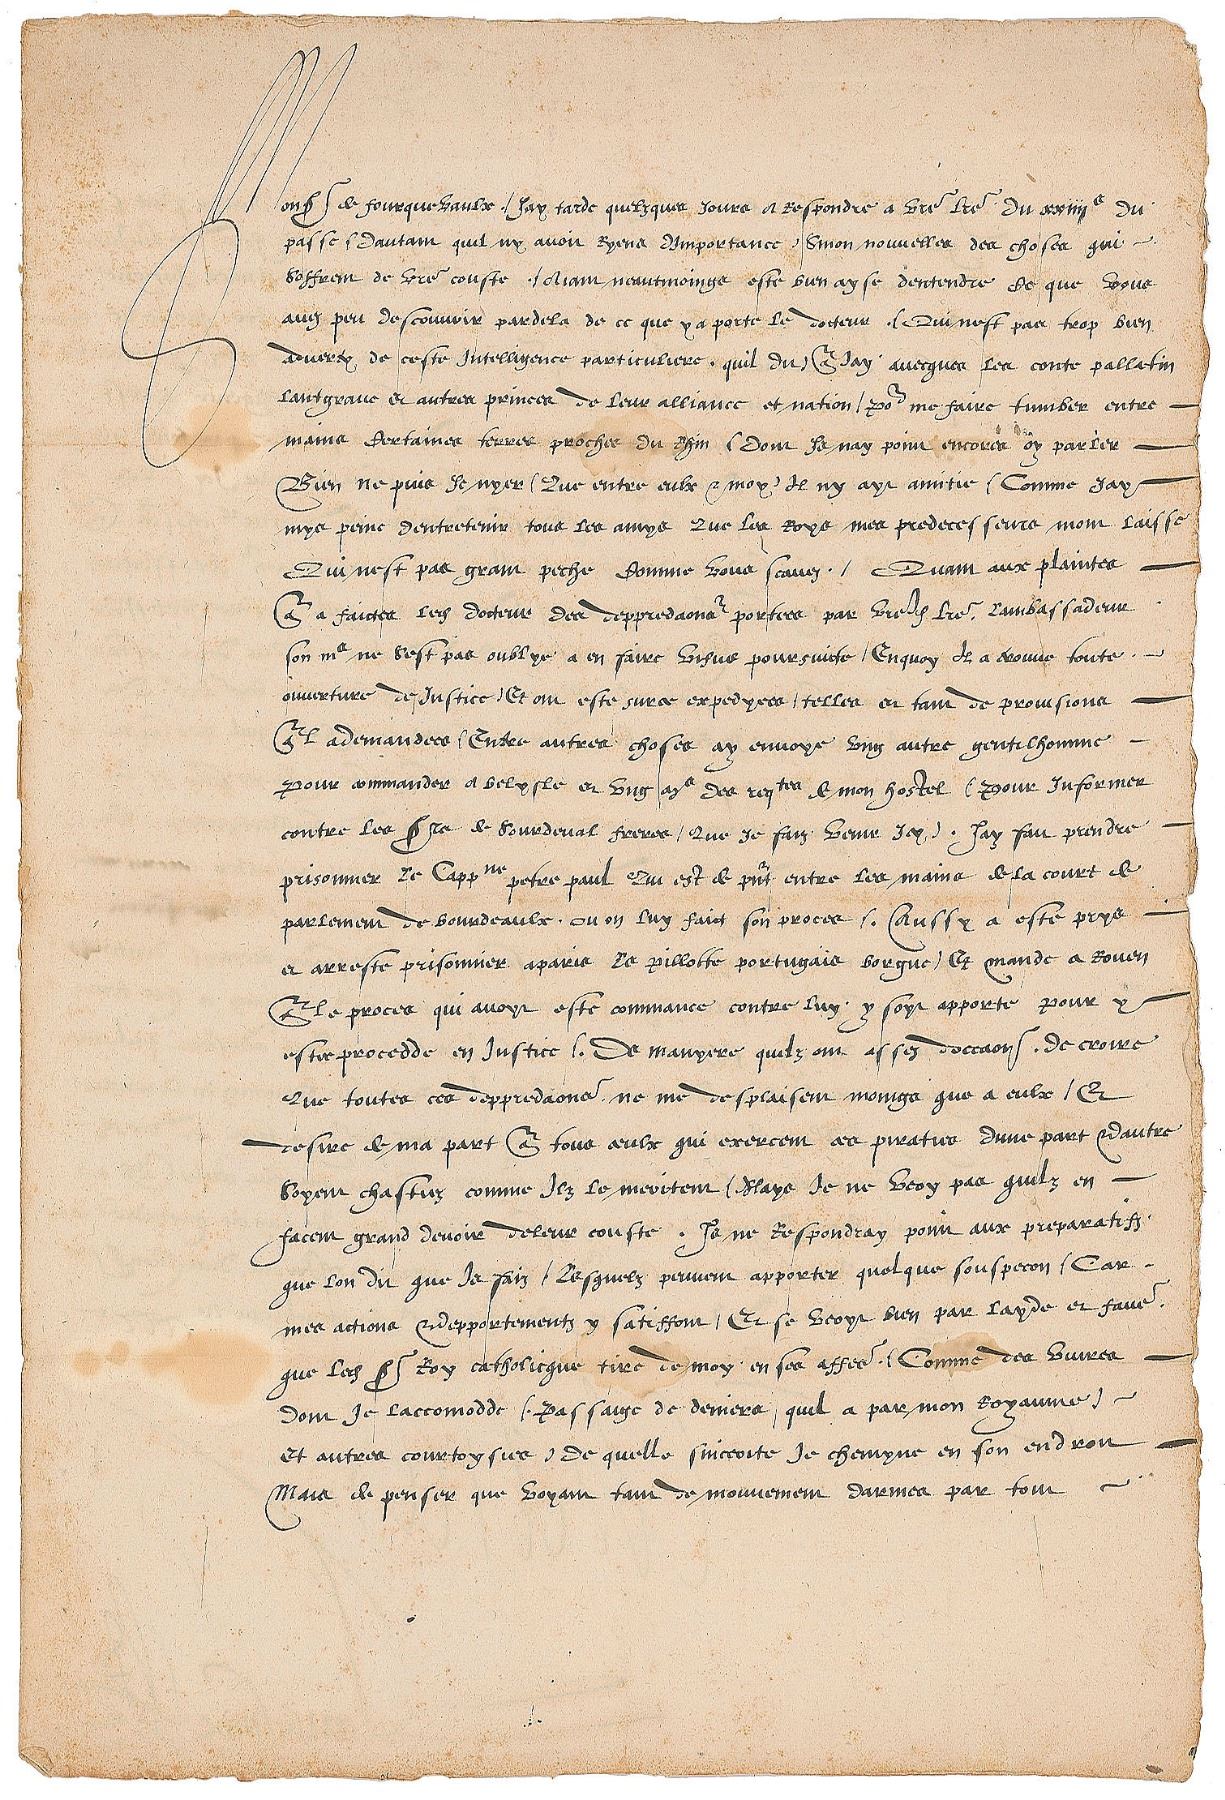 Monsr de fourquevaulx / Jay tarde quelzques Jours a Respondre a vre lre du xxiiije du
passe / dautant quil ny avoit Ryens dImportance / Sinon nouvelles des choses qui
soffrent de vre couste / Mayant neautmoings este bien ayse dentendre Ce que vous
avez peu descouvrir pardela de ce que y a porte le docteur / Qui nest pas trop bien
adverty de ceste Intelligence particuliere quil dit q Jay avecques les conte pallatin
lantgrave et autres princes de leur alliance et nation / por me faire tumber entre
mains Certaines terres proches du Rhin / dont Je nay point encores oy parler
Bien ne puis Je nyer / Que entre eulx & moy Il ny ayt amitie / Comme Jay
mys peine dentretenir tous les amys Que les Roys mes predecesseurs mont laisse
Qui nest pas grant peche Comme vous scavez / Quant aux plaintes
q a faictes led docteur des deppredaons portees par vred lre lambassadeur
son me ne sest pas oublye a en faire visve poursuicte / Enquoy Il a trouve toute
ouverture de Justice / Et ont este sur ce expedyees / telles et tant de provisions
ql a demandees / Entre autres choses ay envoye ung autre gentilhomme
pour commander a belysle et ung me des reqtes de mon hostel / pour Informer
contre les srs de Sourdeval freres / Que Je faiz venir Icy / Jay fait prendre
prisonnier le Cappne petre paul Qui est de pnt entre les mains de la court de
parlement de bourdeaulx ou on luy faict son proces / Aussy a este prys
et arreste prisonnier a paris le pillotte portugais borgne / Et mande a Rouen
q le proces qui avoyt este commance contre luy y soyt apporte pour y
estre procedde en Justice / De manyere quilz ont assez doccaon de croire
Que toutes ces deppredaons ne me desplaisent moings que a eulx / Et
desire de ma part q tous ceulx qui exercent ces piraties dune part & dautre
Soyent chastiez comme Ilz le meritent / Mays Je ne veoy pas quilz en
facent grand devoir de leur couste / Je ne Respondray point aux preparatifz
que lon dit que Je faiz / Lesquelz peuvent apporter quelque souspecon / Car
mes actions & depportements y satiffont / Et se veoyt bien par layde et faver
que led sr Roy catholicque tire de moy en ses affes / Comme des vivres
dont Je laccomodde / passaige de deniers quil a par mon Royaume /
et autres courtoysies / de quelle sincerite Je chemyne en son endroit
Mais de penser que voyant tant de mouvement darmes par tout